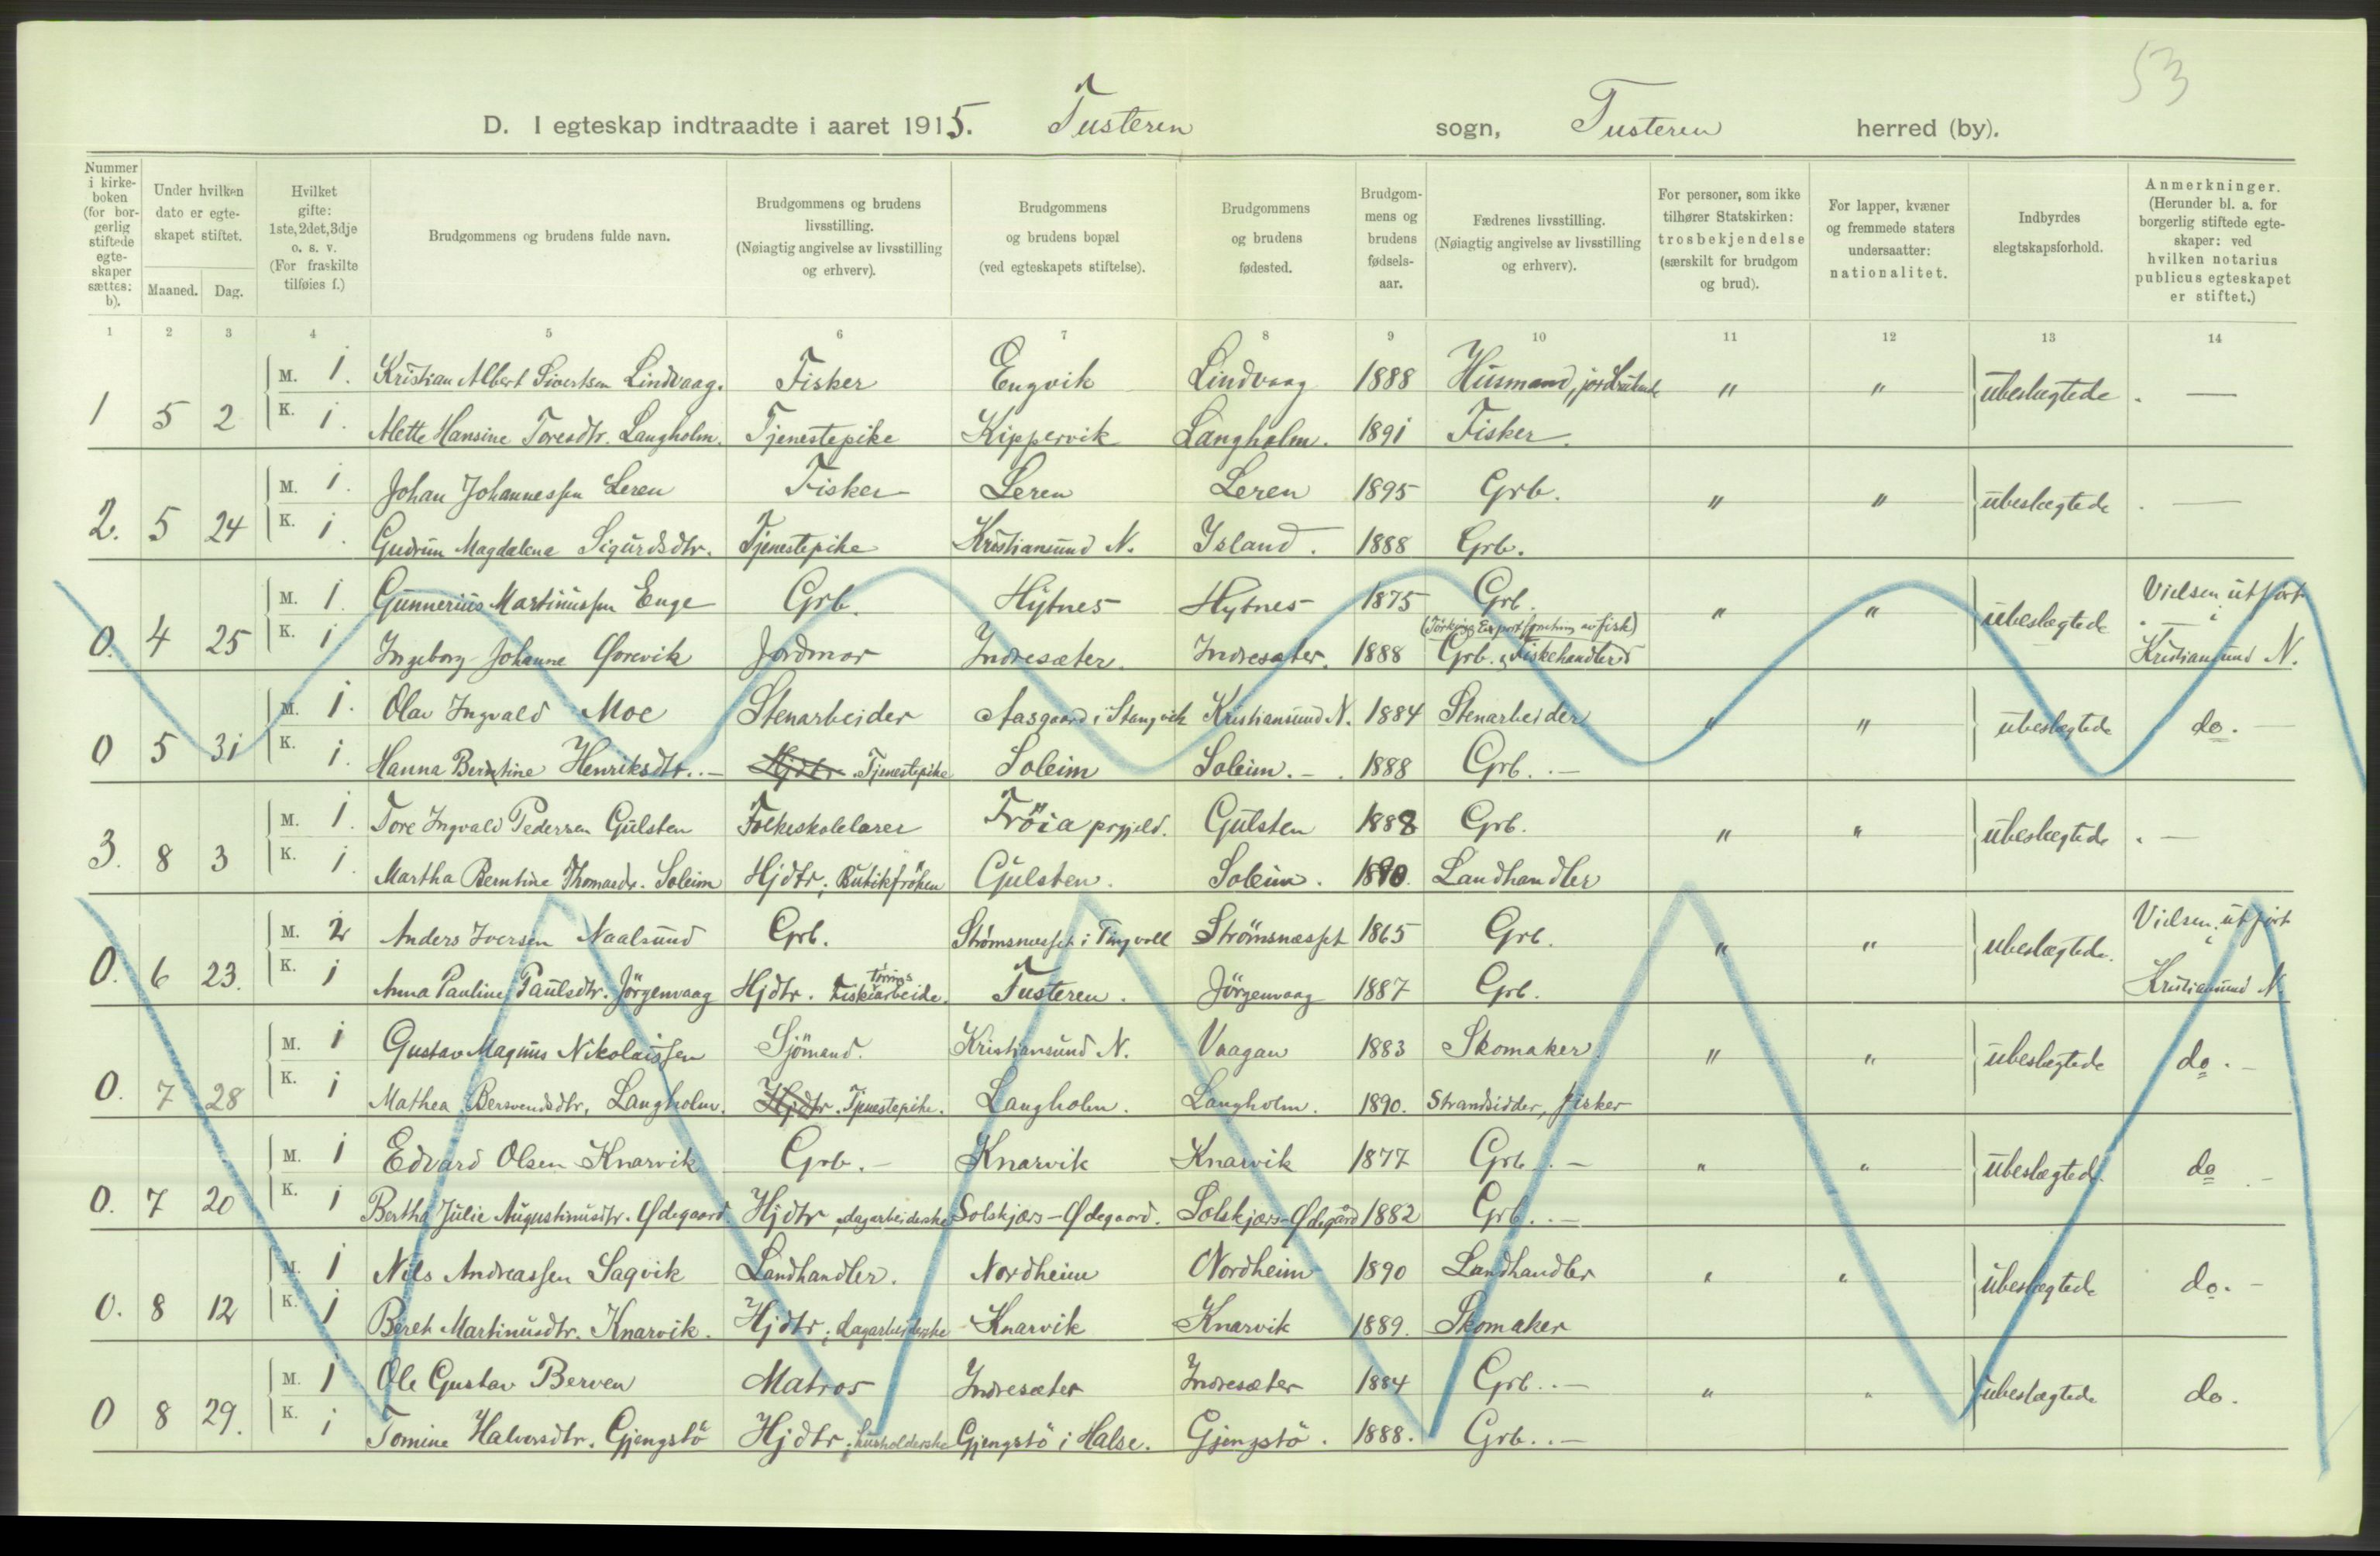 53
D. I egteskap indtraadte i aaret 1915. Tusteren sogn, Tusteren herred (by).
Nummer i kirke-boken (for bor-gerlig stiftede egte-skaper sættes: b).
Under hvilken dato er egte-skapet stiftet.
Maaned. Dag.
Hvilket gifte: 1ste, 2det, 3dje o. s. v. (For fraskilte tilføies f.)
Brudgommens og brudens fulde navn.
Brudgommens og brudens livsstilling. (Nøiagtig angivelse av livsstilling og erhverv).
Brudgommens og brudens bopæl (ved egteskapets stiftelse).
Brudgommens og brudens fødested.
Brudgom-mens og brudens fødsels-aar.
Fædrenes livsstilling. (Nøiagtig angivelse av livsstilling og erhverv).
For personer, som ikke tilhører Statskirken: trosbekjendelse (særskilt for brudgom og brud).
For lapper, kvæner og fremmede staters undersaatter: nationalitet.
Indbyrdes slegtskapsforhold.
Anmerkninger. (Herunder bl. a. for borgerlig stiftede egte-skaper: ved hvilken notarius publicus egteskapet er stiftet.)
1 2 3 4 5 6 7 8 9 10 11 12 13 14
M. 1. Kristian Albert Sivertsen Lindvaag. Fisker Engvik Lindvaag 1888 Husmand,
1 5 2 " " ubeslægtede . —
K. 1. Alette Hansine Toresdtr. Langholm. Tjenestepike Kippervik Langholm. 1891 Fisker.
M. 1. Johan Johannessen Leren Fisker Leren Leren 1895 Grb.
2. 5 24 " " ubeslægtede . —
K. 1. Gudrun Magdalena Sigurdsdtr. Tjenestepike Kristiansund N. Island. 1888 Grb.
M. 1. Gunnerius Martinussen Enge Grb. Hytnes Hytnes 1875 Grb. Vielsen utført
0. 4 25 " " ubeslægtede i
K. 1 Ingeborg Johanne Gorevik Jordmor Indresæter. Indresæter. 1888 Grb. & Fiskehandler Kristiansund N.
M. 1. Olav Ingvald Moe Stenarbeider Aasgaard i Stangvik Kristiansund N. 1884 Stenarbeider
0 5 31 " " ubeslægtede do.
K. 1. Hanna Berntine Henriksdtr. Hjdtr. Tjenestepike Soleim Soleim. 1888 Grb.
M. 1. Tore Ingvald Pedersen Gulsten Folkeskolelærer Fröia prgjeld. Gulsten 1888 Grb.
3. 8 3 " " ubeslægtede . —
K. 1. Martha Berntine Thomasdr. Soleim Hjdtr; Butikfröken Gulsten. Soleim. 1890. Landhandler
M. 2 Anders Iversen Naalsund Grb. Strømsnæsset i Tingvoll Strömsnæsset 1865 Grb. Vielsen utført
0. 6 23. " " ubeslægtede. i
K. 1 Anna Pauline Paulsdtr. Jörgenvaag Hjdtr. Fisketørringsarbeide. Tusteren. Jörgenvaag 1887 Grb. Kristiansund N.
M. 1 Gustav Magnus Nikolaissen Sjömand. Kristiansund N. Vaagan 1883 Skomaker.
0. 7 28 " " ubeslægtede do. –
K. 1 Mathea Bersvendsdtr. Langholm. Hjdtr. Tjenestepike. Langholm. Langholm. 1890. Strandsidder, fisker
M. 1 Edvard Olsen Knarvik Grb. Knarvik Knarvik 1877 Grb.
0. 7 20 " " ubeslægtede. do
K. 1 Bertha Julie Augustinusdtr. Ødegaard. Hjdtr, dagarbeiderske Solskjærs-Ødegaard. Solskjærs-Ødegård 1882 Grb.
M. 1 Nils Andreassen Sagvik Landhandler. Nordheim Nordheim 1890 Landhandler
0. 8 12 " " ubeslægtede do. –
K. 1 Bereth Martinusdtr. Knarvik. Hjdtr; dagarbeiderske Knarvik Knarvik 1889. Skomaker
M. 1 Ole Gustav Berven Matros Indresæter Indresæter 1884 Grb.
0 8 29. " " ubeslægtede do.
K. 1 Tomine Halvorsdtr. Gjengstö Hjdtr; husholderske Gjengstö i Halse. Gjengstö. 1888. Grb.